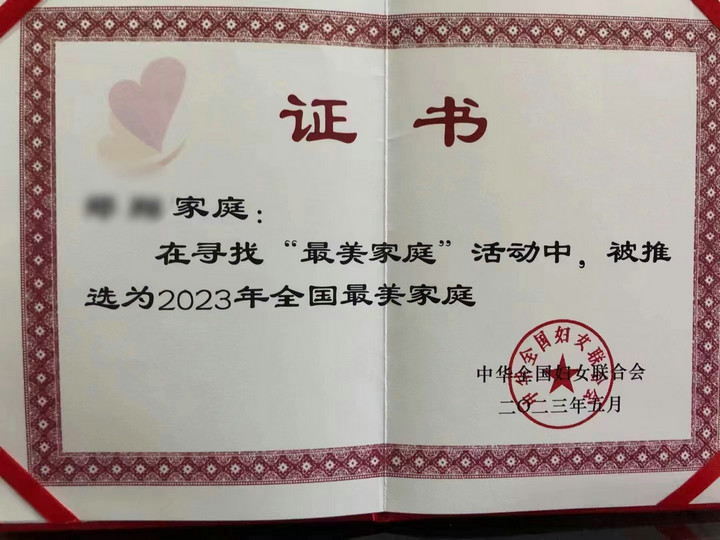 证 书
家庭：
在寻找“最美家庭”活动中，被推
选为2023年全国最美家庭
中华全国妇女联合会
二〇二三年五月
中华全国妇女联合会